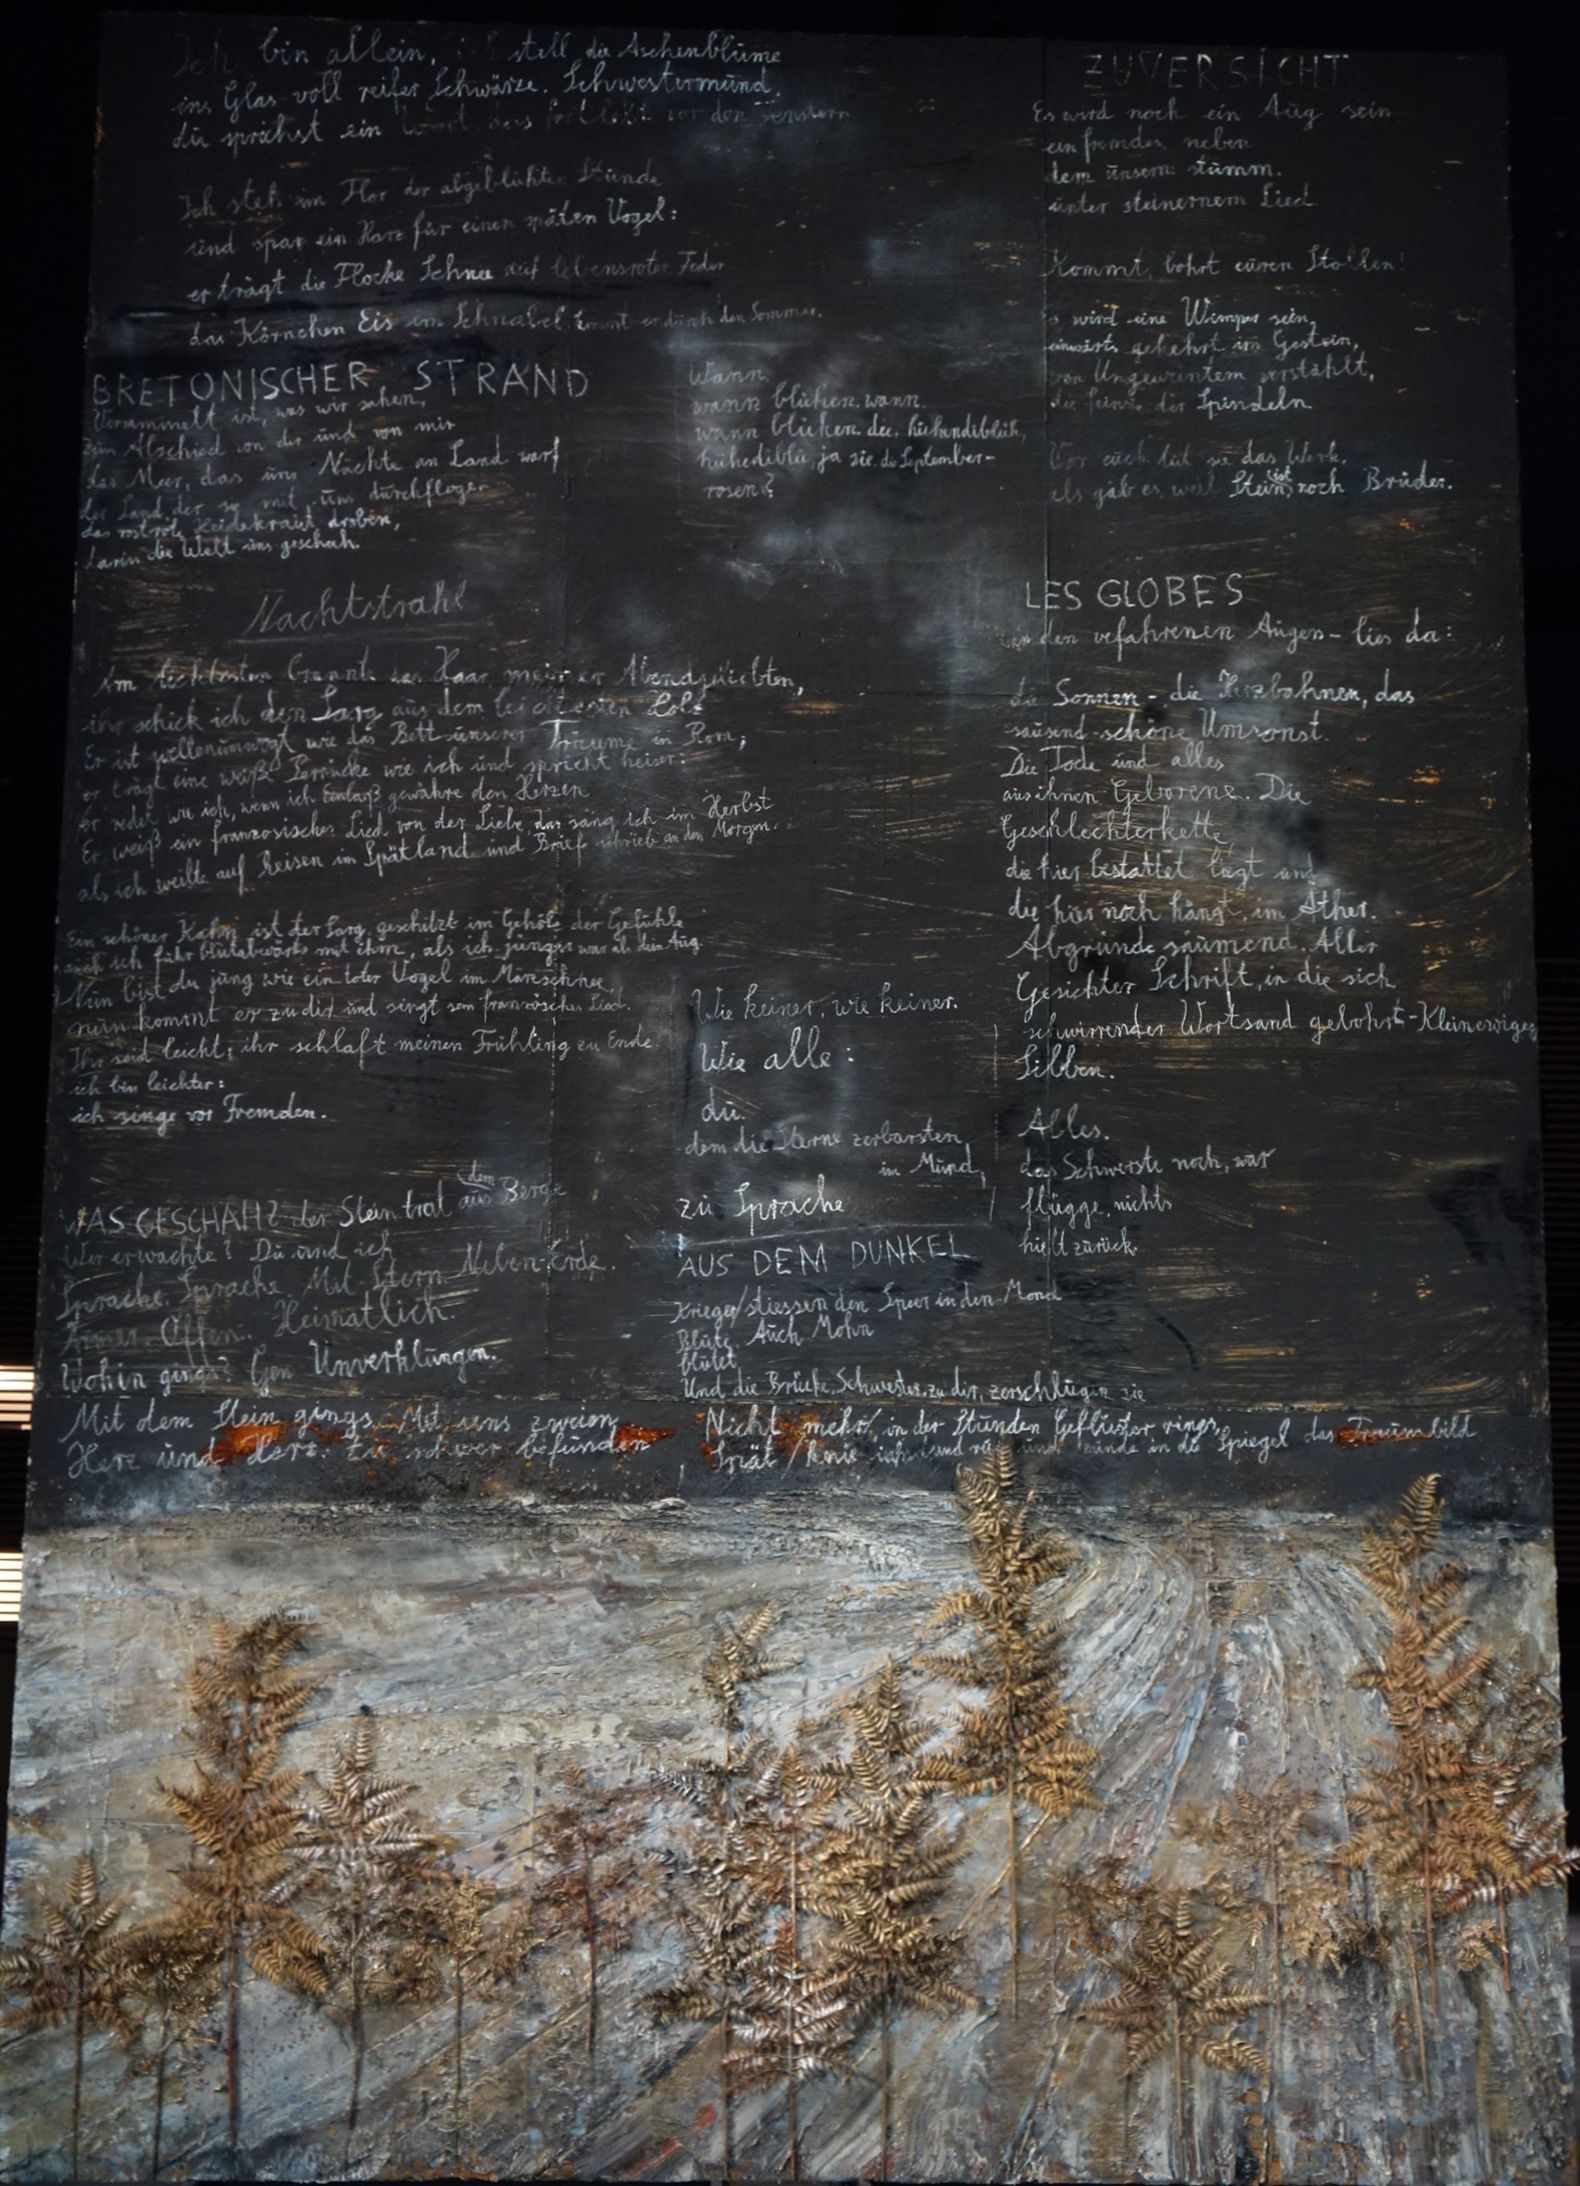 Ich bin allein, ich stell die Aschenblume
ins Glas voll reifer Schwärze. Schwestermund,
du sprichst ein Wort, das fortlebt vor den Fenstern
Ich steh im Flor der abgeblühten Stunde
und spar ein Harz für einen späten Vogel:
er trägt die Flocke Schnee auf lebensroter Feder
das Körnchen Eis im Schnabel kommt er durch den Sommer.
BRETONISCHER STRAND
Versammelt ist, was wir sahen,
zum Abschied von dir und von mir
das Meer, das uns Nächte an Land warf
der Sand, der sie mit uns durchflogen
das rostrote Heidekraut droben,
darin die Welt uns geschah.
Wann,
wann blühen, wann,
wann blühen die, hühendiblüh,
hühediblu, ja sie, die September-
rosen?
Nachtstrahl
Am lichtesten brannt das Haar meiner Abendgeliebten,
ihr schick ich den Sarg aus dem leichtesten Holz
Er ist wellenumwogt wie das Bett unserer Träume in Rom;
er trägt eine weiße Perrücke wie ich und spricht heiser:
er redet wie ich, wenn ich Einlaß gewähre den Herzen
Er weiß ein französisches Lied von der Liebe, das sang ich im Herbst
als ich weilte auf Reisen im Spätland und Briefe schrieb an den Morgen.
Ein schöner Kahn ist der Sarg, geschnitzt im Gehölz der Gefühle
auch ich fuhr blutabwärts mit ihm, als ich jünger war als dein Aug.
Nun bist du jung wie ein toter Vogel im Märzschnee,
nun kommt er zu dir und singt sein französisches Lied.
Ihr seid leicht; ihr schlaft meinen Frühling zu Ende
ich bin leichter:
ich singe vor Fremden.
WAS GESCHAH? der Stein trat aus dem Berge
Wer erwachte? Du und ich
Sprache, Sprache. Mit-Stern Neben-Erde.
Ärmer. Offen. Heimatlich.
Wohin gings? Gen Unverklungen.
Mit dem Stein gings. Mit uns zweien
Herz und Herz. Zu schwer befunden
Wie keiner, wie keiner.
Wie alle:
du.
dem die Sterne zerbarsten,
im Mund,
zu Sprache
AUS DEM DUNKEL
Krieger/stiessen den Speer in den Mond
Blute Auch Mohn
blutet
Und die Brücke, Schwester, zu dir, zerschlugen sie
Nicht mehr/ in der Stunden Geflüster rings,
Spät / knie ich und zünde in die Spiegel das Traumbild
ZUVERSICHT
Es wird noch ein Aug sein
ein fremdes, neben
dem unsern: stumm.
unter steinernem Lied
Kommt, bohrt euren Stollen!
Es wird eine Wimper sein,
einwärts gekehrt im Gestein,
von Ungeweintem verstählt,
die feinste der Spindeln.
Vor euch tut sie das Werk,
als gäb es, weil Stein ist, noch Brüder.
LES GLOBES
in den vefahrenen Augen - lies da:
die Sonnen - die Herzbahnen, das
sausend-schöne Umsonst.
Die Tode und alles
aus ihnen Geborene. Die
Geschlechterkette,
die hier bestattet liegt und
die hier noch hängt, im Äther.
Abgründe säumend. Aller
Gesichter Schrift, in die sich
schwirrender Wortsand gebohrt - Kleinewiges,
Silben.
Alles.
das Schwerste noch, war
flügge, nichts
hielt zurück.